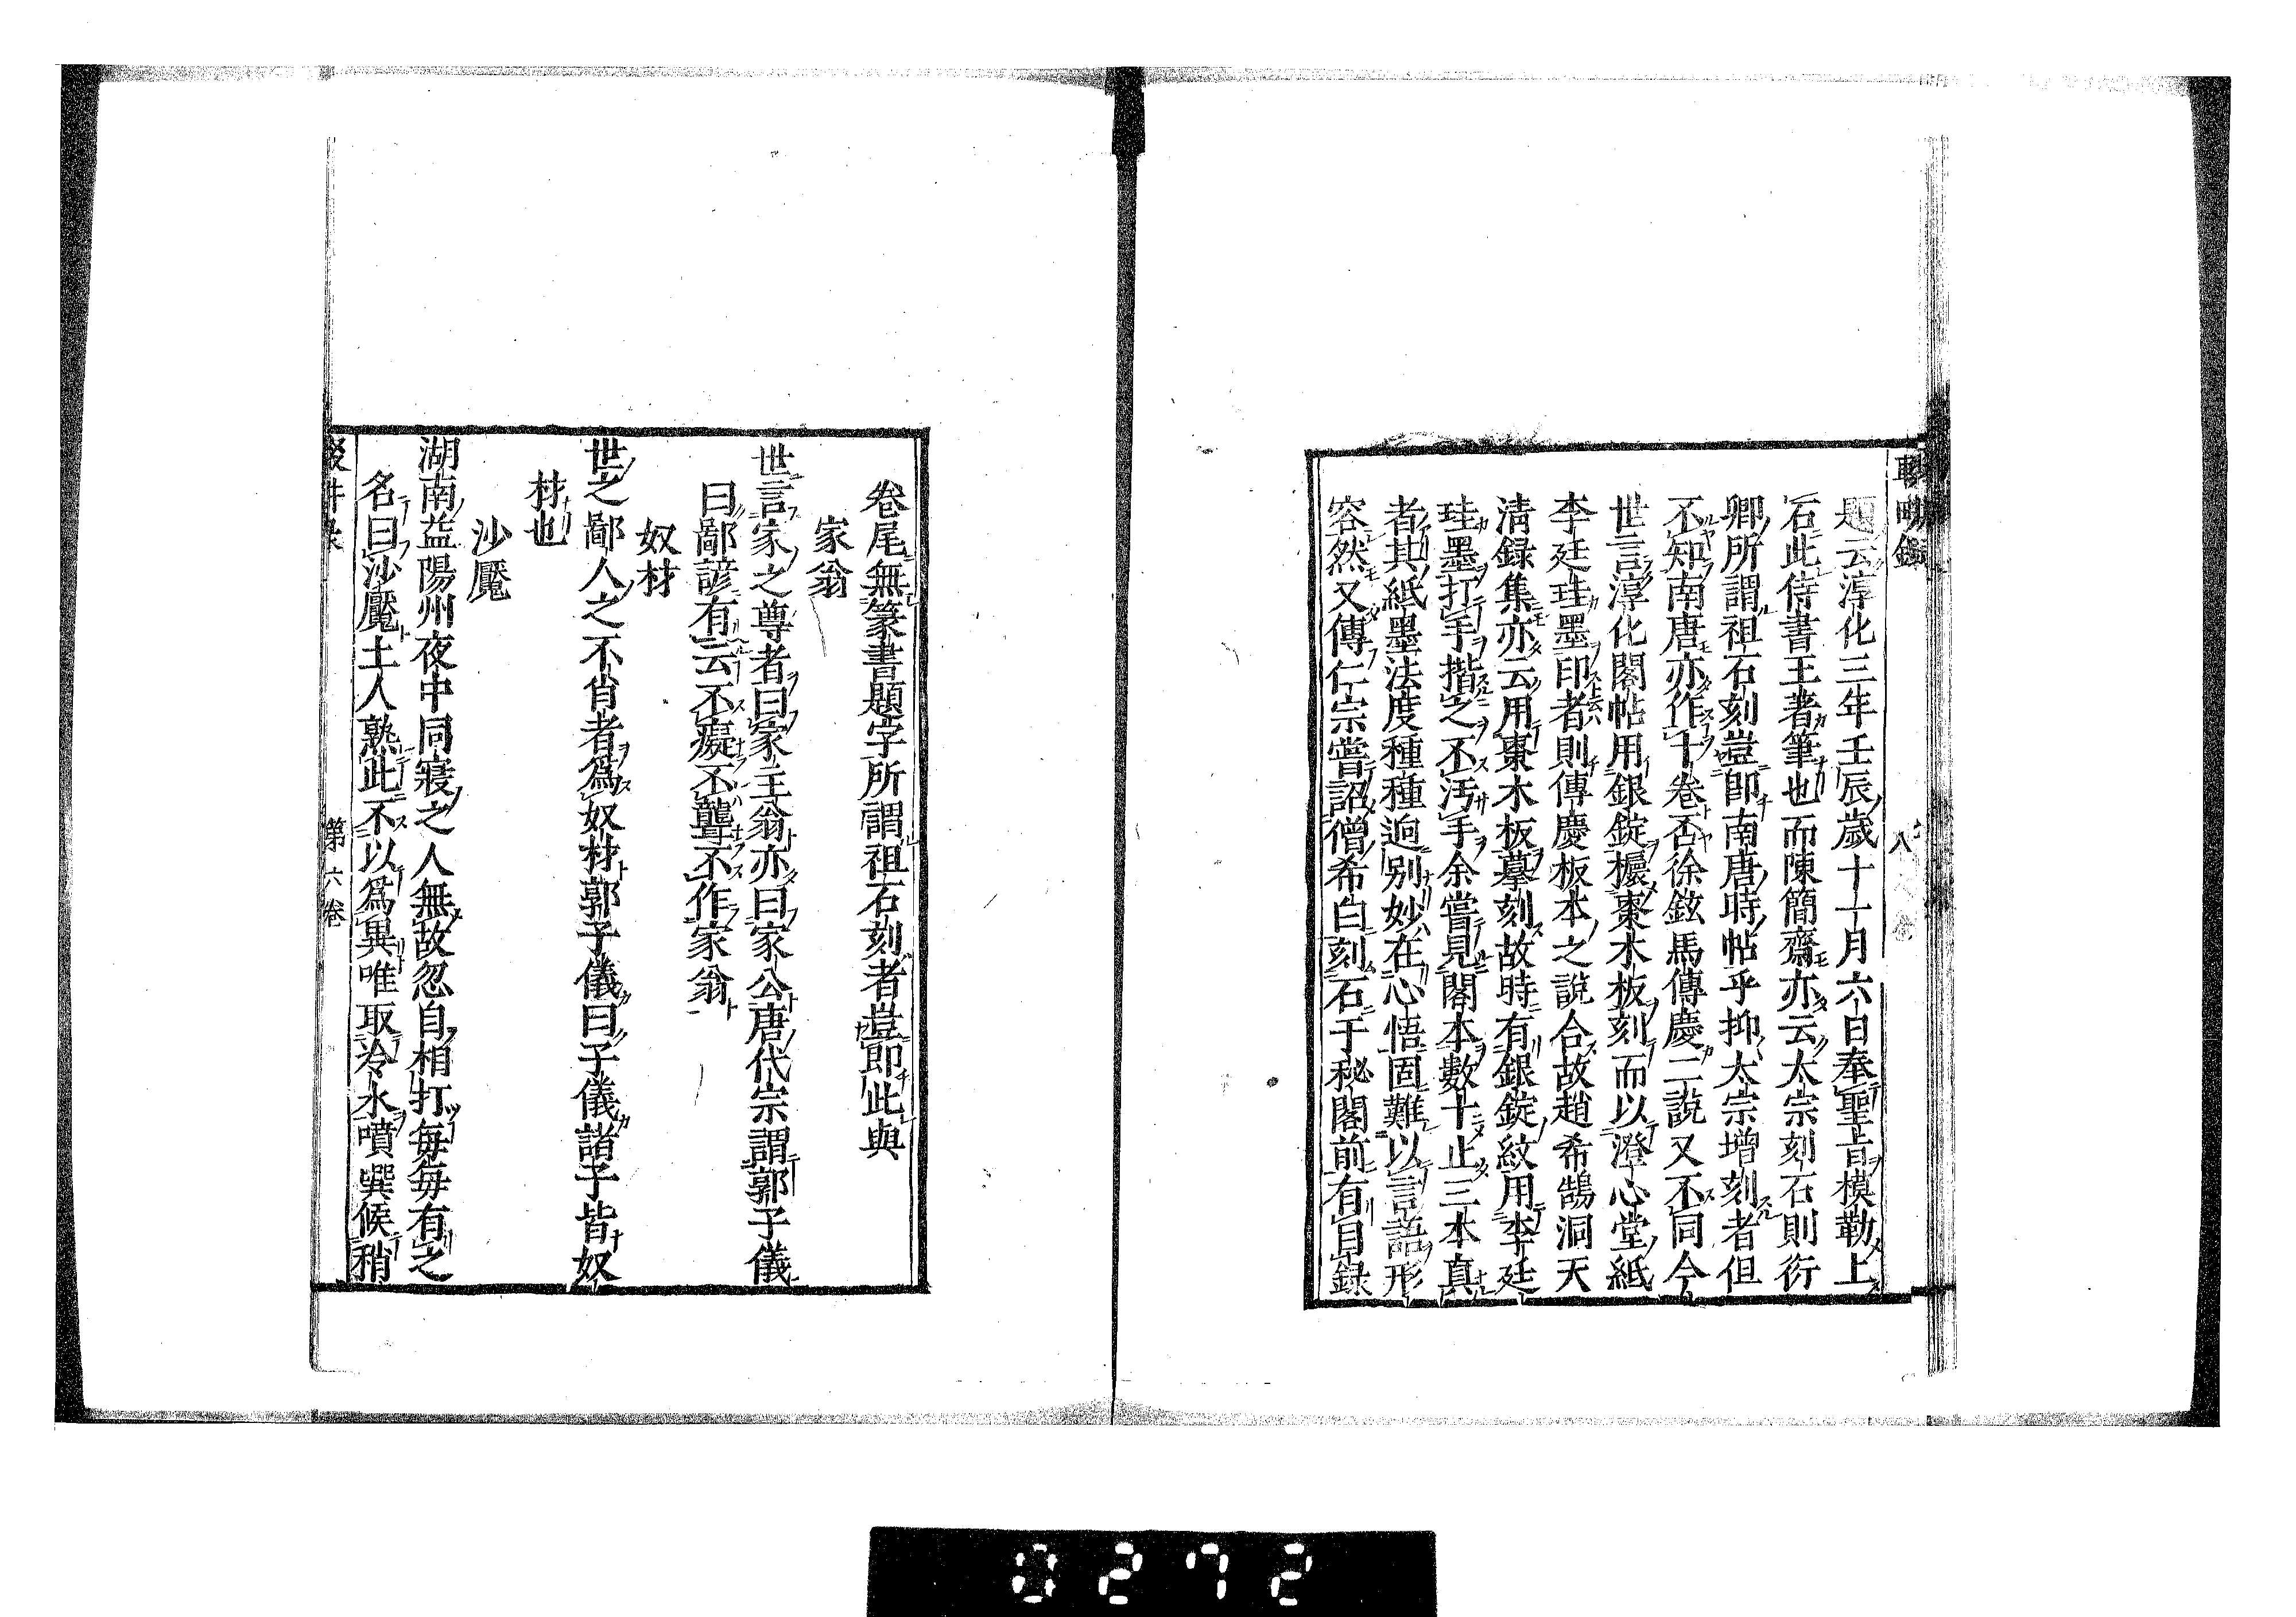 題云淳化三年壬辰歲十一月六日奉聖旨模勒上
石此侍書王著筆也而陳簡齋亦云太宗刻石則行
卿所謂祖石刻豈即南唐時帖乎抑太宗增刻者但
不知南唐亦作十卷否徐鉉馬傳慶二說又不同今
世言淳化閣帖用銀錠櫼棗木板刻而以澄心堂紙
李廷珪墨印者則傳慶板本之說合故趙希鵠洞天
清録集亦云用棗木板摹刻故時有銀錠紋用李廷
珪墨打手揩之不汚手余嘗見閣本數十止三本真
者其紙墨法度種種逈别妙在心悟固難以言語形
容然又傳仁宗嘗詔僧希白刻石于秘閣前有目録
卷尾無篆書題字所謂祖石刻者豈即此與
家翁
世言家之尊者曰家主翁亦曰家公唐代宗謂郭子儀
曰鄙諺有云不癡不聾不作家翁
奴材
世之鄙人之不肖者爲奴材郭子儀曰子儀諸子皆奴
材也
沙魘
湖南益陽州夜中同寢之人無故忽自相打每每有之
名曰沙魘土人熟此不以爲異唯取冷水噴噀候稍
第六卷
0272